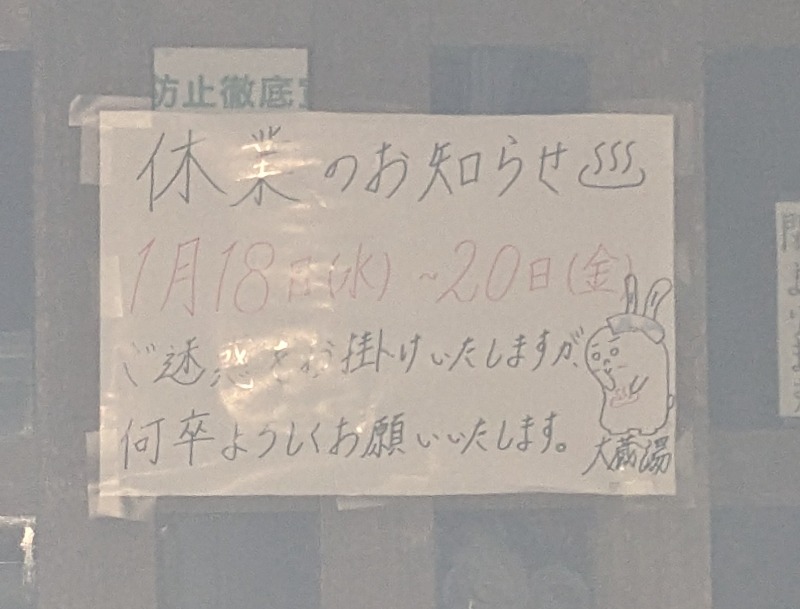 防止徹底宣
休業のお知らせ♨
1月18日(水)~20日(金)
ご迷惑をお掛けいたしますが、
何卒よろしくお願いいたします。
大蔵湯